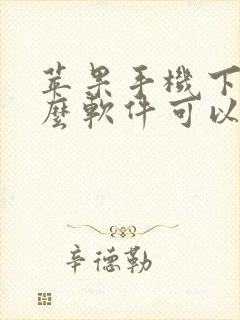 苹果手機下
麼軟件可以
辛德勒